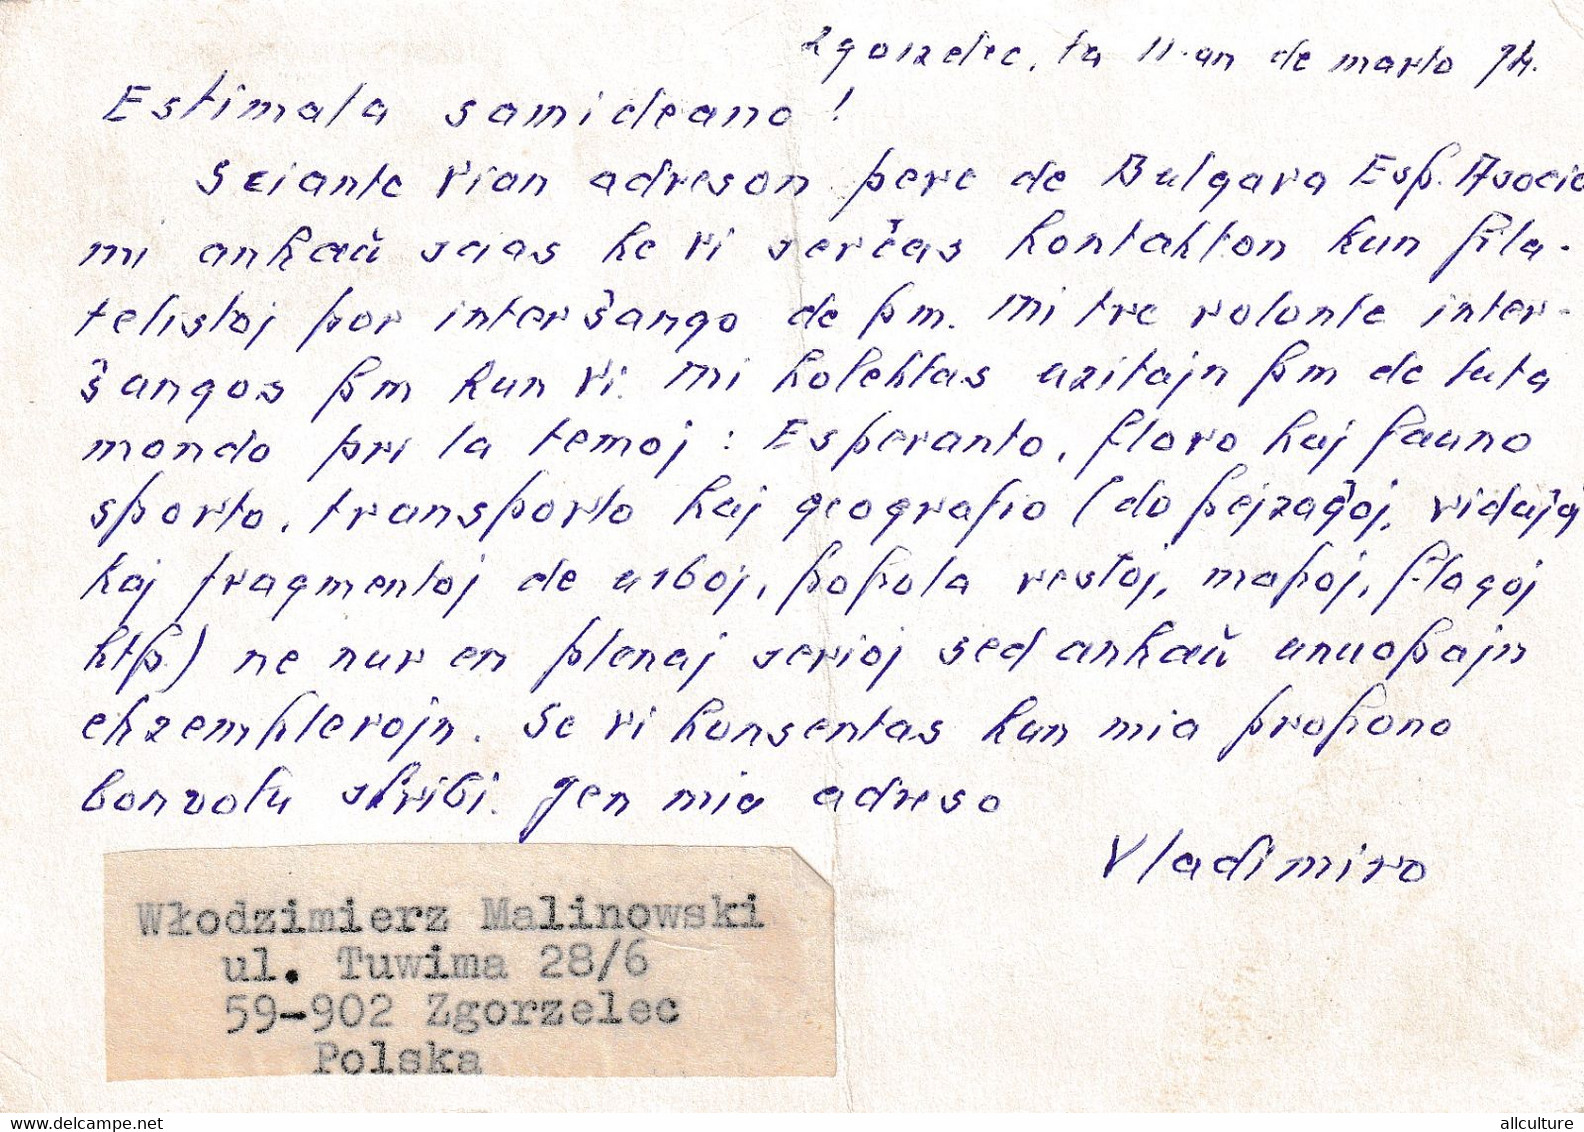 Zgorzelec, la 11-an de marto 74.
Estimata samideano!
Sciante vian adreson pere de Bulgara Esp. Asocio
mi ankaŭ scias ke vi serĉas kontakton kun fila-
telistoj por interŝanĝo de pm. Mi tre volonte inter-
ŝanĝos pm kun vi. Mi kolektas uzitajn pm de tuta
mondo pri la temoj: Esperanto, floro kaj fauno
sporto, transporto kaj geografio (do pejzaĝoj, vidaĵoj
kaj fragmentoj de urboj, popola vestoj, mapoj, flagoj
ktp) ne nur en plenaj serioj sed ankaŭ unuopajn
ekzemplerojn. Se vi konsentas kun mia propono
bonvolu skribi. Jen mia adreso
Vladimiro
Włodzimierz Malinowski
ul. Tuwima 28/6
59-902 Zgorzelec
Polska
allculture